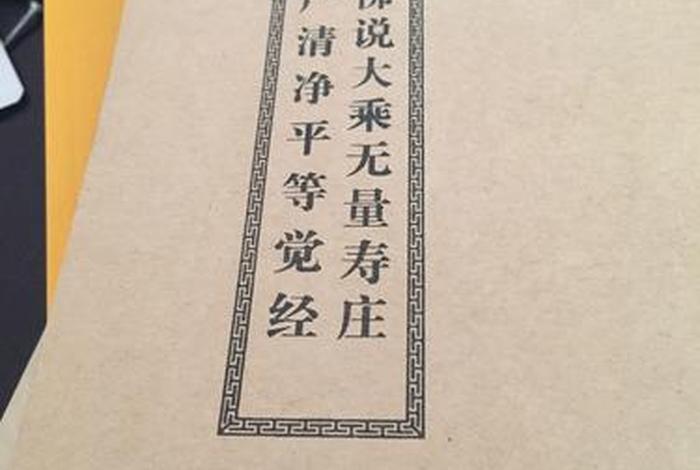 佛说大乘无量寿庄
严清净平等觉经